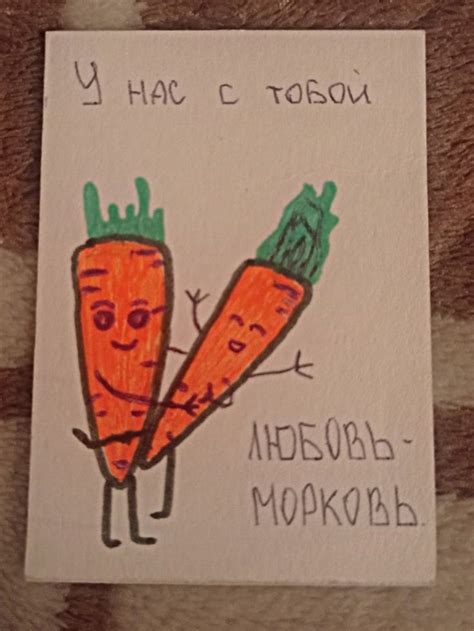 У нас с тобой
ЛЮБОВЬ-
МОРКОВЬ.